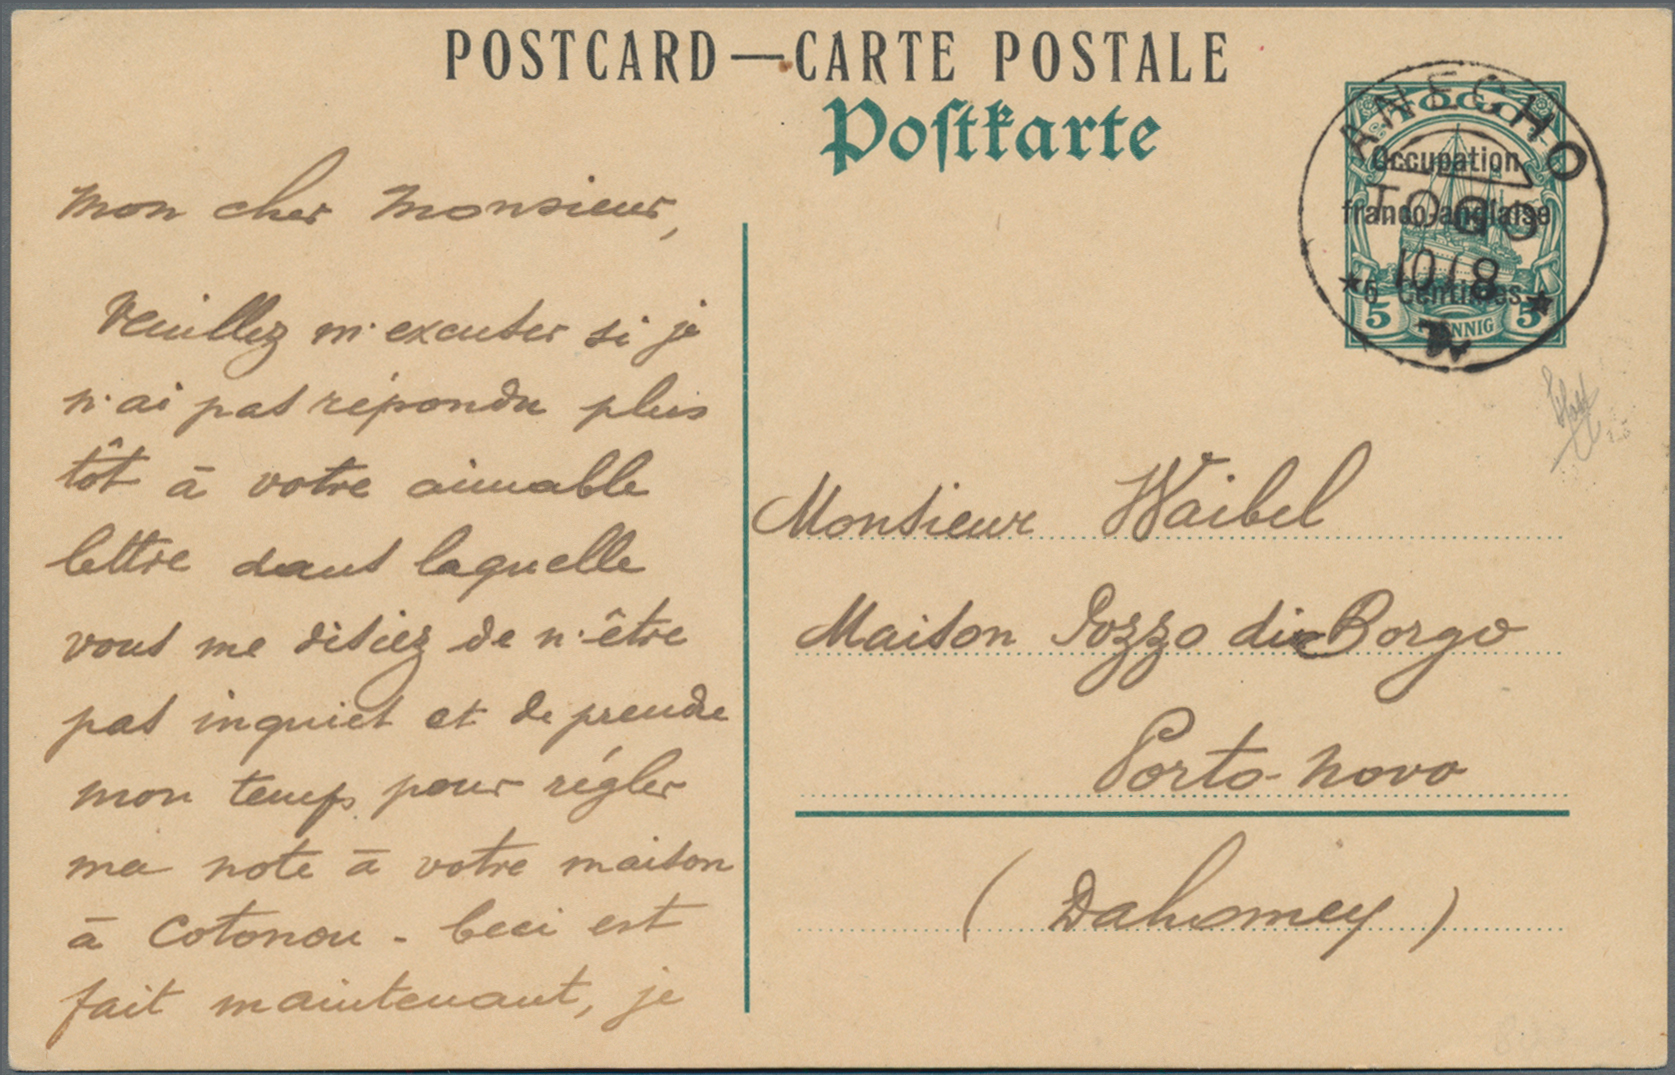 POSTCARD — CARTE POSTALE
Postkarte
ANECHO
TOGO
Occupation
franco-anglaise
TOGO
10 / 8
5 Centimes
5 PFENNIG 5
mon cher Monsieur,
Veuillez m'excuser si je
n'ai pas répondu plus
tôt à votre aimable
lettre dans laquelle
vous me disiez de n'être
pas inquiet et de prendre
mon temps pour régler
ma note à votre maison
à Cotonou - Ceci est
fait maintenant, je
Monsieur Waibel
Maison Pozzo di Borgo
Porto-Novo
(Dahomey)